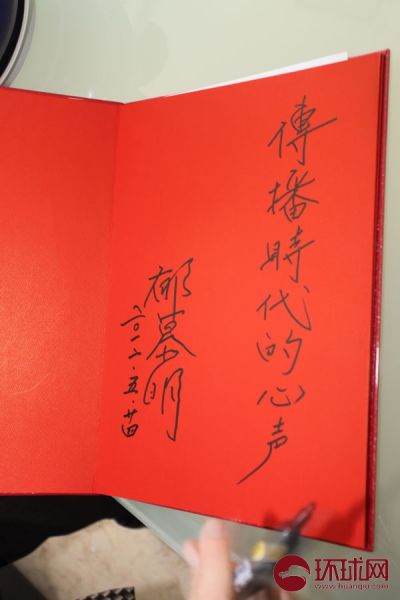 傳播時代的心声
郁慕明
二〇一二·五·廿四
环球网
www.huanqiu.com